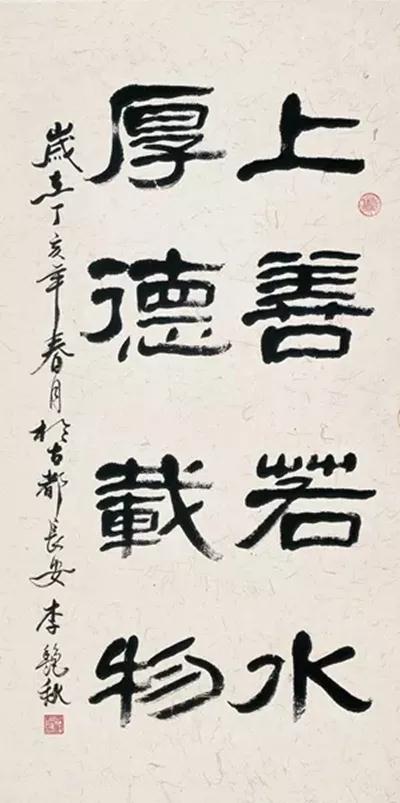 上善若水
厚德載物
歲在丁亥年春月於古都長安 李艳秋